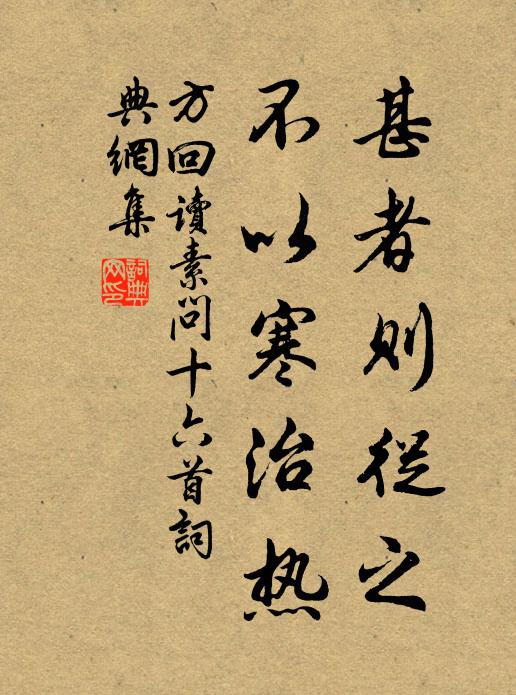 甚者则從之
不以寒治热
方回讀素問十六首詞
典網集
詞典
网印